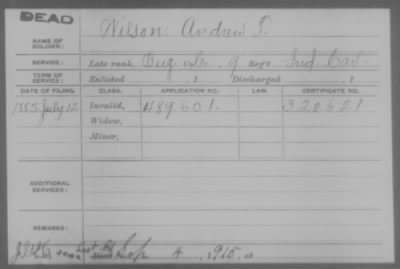 DEAD
NAME OF SOLDIER: Wilson Andrew T.
SERVICE: Late rank, Bugler. G Reg't Ind Cav.
TERM OF SERVICE: Enlisted , 1 Discharged , 1
DATE OF FILING. CLASS. APPLICATION NO. LAW. CERTIFICATE NO.
1883 July 12 Invalid, 489601. 320621
Widow,
Minor,
ADDITIONAL SERVICES:
REMARKS:
4, 1915,